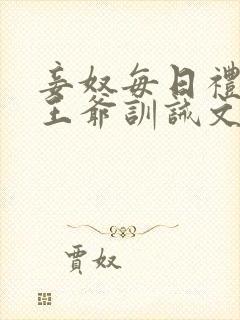 妾奴每日禮
王爺訓誡文
賈奴